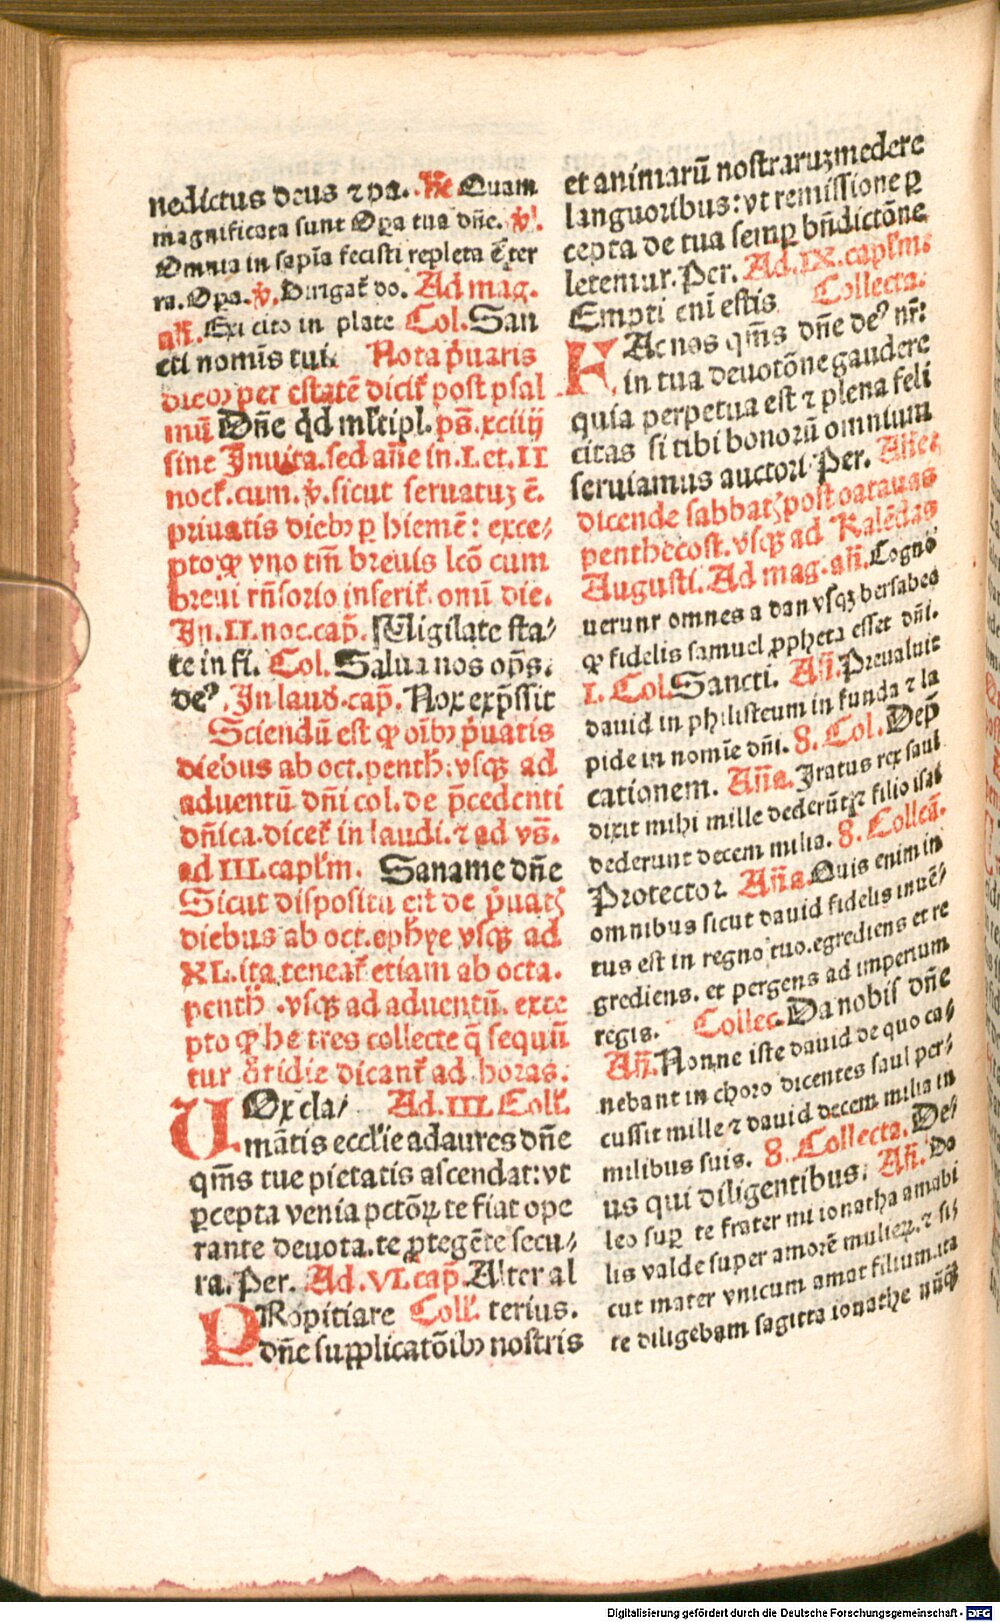 nedictus deus ⁊ pa. Re Quam
magnificata sunt Opa tua dn̄e. v̄.
Omnia in sapīa fecisti repleta ē ter
ra. Opa. v̄. Dirigat̄ do. Ad mag.
an̄. Exi cito in plate Col. San
cti nomīs tui. Nota p̄uatis
dieb⁹ per estatē dicit̄ post psal
mū Dn̄e q̇d ml̄tipl. ps̄. xciiij
sine Inuita. sed an̄e in. I. et. II
noct̄. cum. v̄. sicut seruatuꝫ ē.
priuatis dieb⁹ ꝑ hiemē: exce⸗
pto ꝙ vno tm̄ breuis lcō cum
breui rn̄sorio inserit̄. omī die.
In. II. noc. cap̄. Uigilate sta⸗
te in fi. Col. Salua nos op̄s.
de⁹. In laud. cap̄. Nox exp̄ssit
Sciendū est ꝙ oīb⁹ p̄uatis
diebus ab oct. penth̄. vsqꝫ ad
aduentū dn̄i col. de p̄cedenti
dn̄ica. dicet̄ in laudi. ⁊ ad vs̄.
ad III. capl̄m. Saname dn̄e
Sicut dispositū est de p̄uatꝭ
diebus ab oct. ephȳe vsqꝫ ad
XL. ita teneat̄ etiam ab octa.
penth̄. vsqꝫ ad aduentū. exce
pto ꝙ he tres collecte q̄ sequū
tur q̄tidie dicant̄ ad horas.
UOx cla⸗ Ad. III. Coll̄.
mātis eccl̄ie ad aures dn̄e
qm̄s tue pietatis ascendat: vt
ꝑcepta venia pctōꝝ te fiat ope
rante deuota. te ꝓtegēte secu⸗
ra. Per. Ad. VI. cap̄. Alter al
PRopitiare Coll̄. terius.
dn̄e supplicatōib⁹ nostris
et animarū nostraruꝫ medere
languoribus: vt remissione ꝑ
cepta de tua semꝑ bn̄dictōne
letemur. Per. Ad. IX. capl̄m:
Empti enī estis Collecta.
FAc nos qm̄s dn̄e de⁹ nr̄:
in tua deuotōne gaudere
quia perpetua est ⁊ plena feli
citas si tibi bonorū omnium
seruiamus auctori Per. An̄e
dicende sabbatꝭ post octauas
penthecost. vsqꝫ ad Kalēdas
Augusti. Ad mag. an̄. Cogno
uerunt omnes a dan vsqꝫ bersabee
ꝙ fidelis samuel ꝓpheta esset dn̄i.
I. Col. Sancti. An̄. Preualuit
dauid in philisteum in funda ⁊ la
pide in nomīe dn̄i. 8. Col. Dep̄
cationem. An̄a. Iratus rex saul
dixit mihi mille dederūt ⁊ filio isai
dederunt decem milia. 8. Collec̄.
Protector An̄a Quis enim in
omnibus sicut dauid fidelis inuē⸗
tus est in regno tuo. egrediens et re
grediens. et pergens ad imperium
regis. Collec. Da nobis dn̄e
An̄. Nonne iste dauid de quo ca⸗
nebant in choro dicentes saul per⸗
cussit mille ⁊ dauid decem milia in
milibus suis. 8. Collecta. De⸗
us qui diligentibus. An̄. Do
leo suꝑ te frater mi ionatha amabi
lis valde super amorē mulieꝝ. ⁊ si⸗
cut mater vnicum amat filium. ita
te diligebam sagitta ionathe nūqꝫ
Digitalisierung gefördert durch die Deutsche Forschungsgemeinschaft - DFG